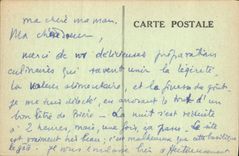 ma chère maman,
CARTE POSTALE
Ma chère
merci de vos délicieuses préparations
culinaires qui savent unir la légèreté,
la valeur alimentaire, et la finesse du goût.
je me suis délecté, en arrosant le tout d'un
bon litre de Bière - La nuit s'est réduite
à 2 heures, mais, une fois, ça passe. Le site
est vraiment très beau,
je vous embrasse bien